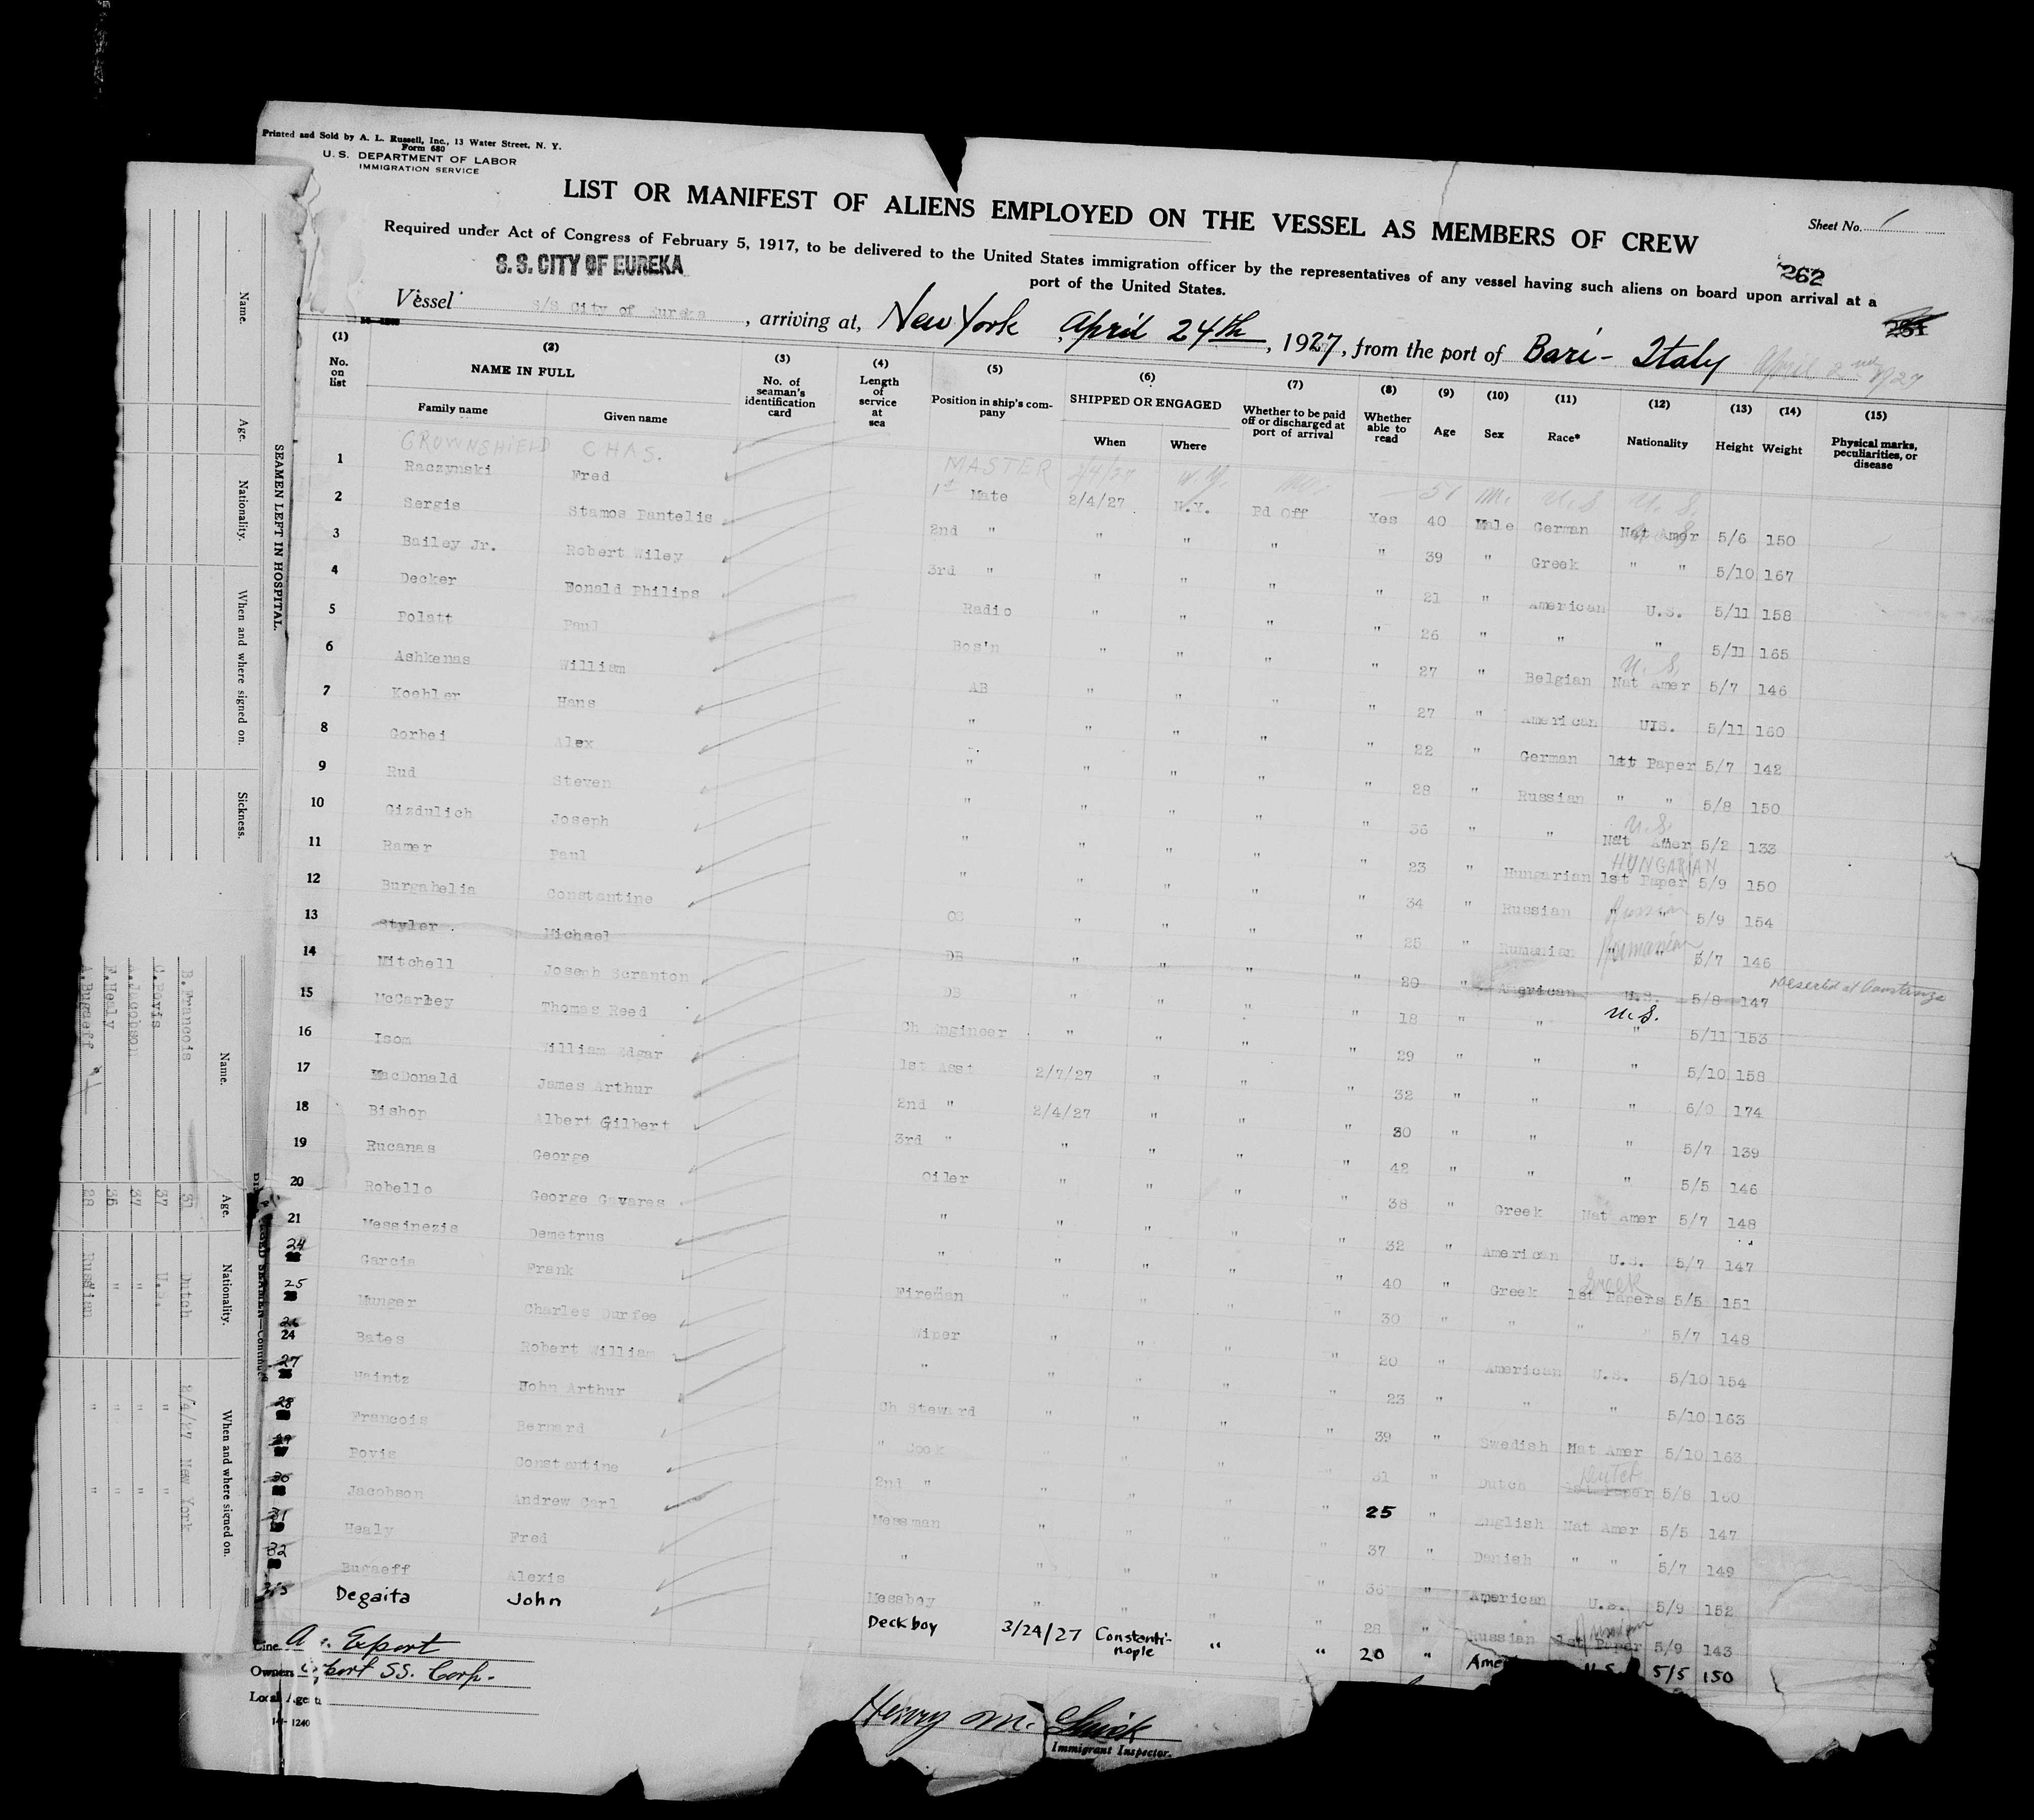 Printed and Sold by A. L. Russell, Inc., 13 Water Street, N. Y.
Form 680
U. S. DEPARTMENT OF LABOR
IMMIGRATION SERVICE
LIST OR MANIFEST OF ALIENS EMPLOYED ON THE VESSEL AS MEMBERS OF CREW
Sheet No. 1
Required under Act of Congress of February 5, 1917, to be delivered to the United States immigration officer by the representatives of any vessel having such aliens on board upon arrival at a
port of the United States.
262
S. S. CITY OF EUREKA
Vessel S/S City of Eureka, arriving at, New York, April 24th, 1927, from the port of Bari - Italy April 2nd 1927
(1) No. on list (2) NAME IN FULL Family name Given name (3) No. of seaman's identification card (4) Length of service at sea (5) Position in ship's company (6) SHIPPED OR ENGAGED When Where (7) Whether to be paid off or discharged at port of arrival (8) Whether able to read (9) Age (10) Sex (11) Race* (12) Nationality (13) Height (14) Weight (15) Physical marks, peculiarities, or disease
CROWNSHIELD CHAS. MASTER 2/4/27 N.Y. No. 51 M. U.S. U.S.
1 Raczynski Fred 1st Mate 2/4/27 N.Y. Pd Off Yes 40 Male German Nat Amer 5/6 150
2 Sergis Stamos Pantelis 2nd " " " " " 39 " Greek " " 5/10 167
3 Bailey Jr. Robert Wiley 3rd " " " " " 21 " American U.S. 5/11 158
4 Decker Donald Philips Radio " " " " 26 " " " 5/11 165
5 Polatt Paul Bos'n " " " " 27 " Belgian U.S. Nat Amer 5/7 146
6 Ashkenas William AB " " " " 27 " American U.S. 5/11 160
7 Koehler Hans " " " " " 22 " German 1st Paper 5/7 142
8 Gorbei Alex " " " " " 28 " Russian " " 5/8 150
9 Rud Steven " " " " " 36 " " U.S. Nat Amer 5/2 133
10 Gizdulich Joseph " " " " " 23 " Hungarian HUNGARIAN 1st Paper 5/9 150
11 Ramer Paul " " " " " 34 " Russian Russian 5/9 154
12 Burgahelia Constantine OS " " " " 25 " Rumanian Roumanian 5/7 146
13 Styler Michael DB " " " " 20 " American U.S. 5/8 147 Deserted at Constanza
14 Mitchell Joseph Scranton DB " " " " 18 " " U.S. " 5/11 153
15 McCarley Thomas Reed Ch Engineer " " " " 29 " " " 5/10 158
16 Isom William Edgar 1st Asst 2/7/27 " " " 32 " " " 6/0 174
17 MacDonald James Arthur 2nd " 2/4/27 " " " 30 " " " 5/7 139
18 Bishop Albert Gilbert 3rd " " " " " 42 " " " 5/5 146
19 Rucanas George Oiler " " " " 38 " Greek Nat Amer 5/7 148
20 Robello George Gavares " " " " " 32 " American U.S. 5/7 147
21 Messinezis Demetrus " " " " " 40 " Greek Greek 1st Papers 5/5 151
24 Garcia Frank Fireman " " " " 30 " " " " 5/7 148
25 Munger Charles Durfee Wiper " " " " 20 " American U.S. 5/10 154
26 24 Bates Robert William " " " " " 23 " " " 5/10 163
27 Haintz John Arthur Ch Steward " " " " 39 " Swedish Nat Amer 5/10 163
28 Francois Bernard " Cook " " " " 31 " Dutch Dutch 1st Paper 5/8 160
29 Povis Constantine 2nd " " " " " 25 " English Nat Amer 5/5 147
30 Jacobson Andrew Carl Messman " " " " 37 " Danish " " 5/7 149
31 Healy Fred " " " " " 36 " American U.S. 5/9 152
32 Bugaeff Alexis Messboy " " " " 28 " Russian Russian 1st Paper 5/9 143
Degaita John Deck boy 3/24/27 Constantinople " " 20 " Ame U.S. 5/5 150
Line Export
Owners Export SS. Corp.
Local Agents
14-1240
Henry M.
Immigrant Inspector.
SEAMEN LEFT IN HOSPITAL.
Name. Age. Nationality. When and where signed on. Sickness.
SEAMEN—Continued
Name. Age. Nationality. When and where signed on.
B. Francois 31 Dutch 2/4/27 New York
C. Povis 37 U.S. " "
A. Jacobson 37 " " "
F. Healy 36 " " "
A. Bugaeff 28 Russian " "